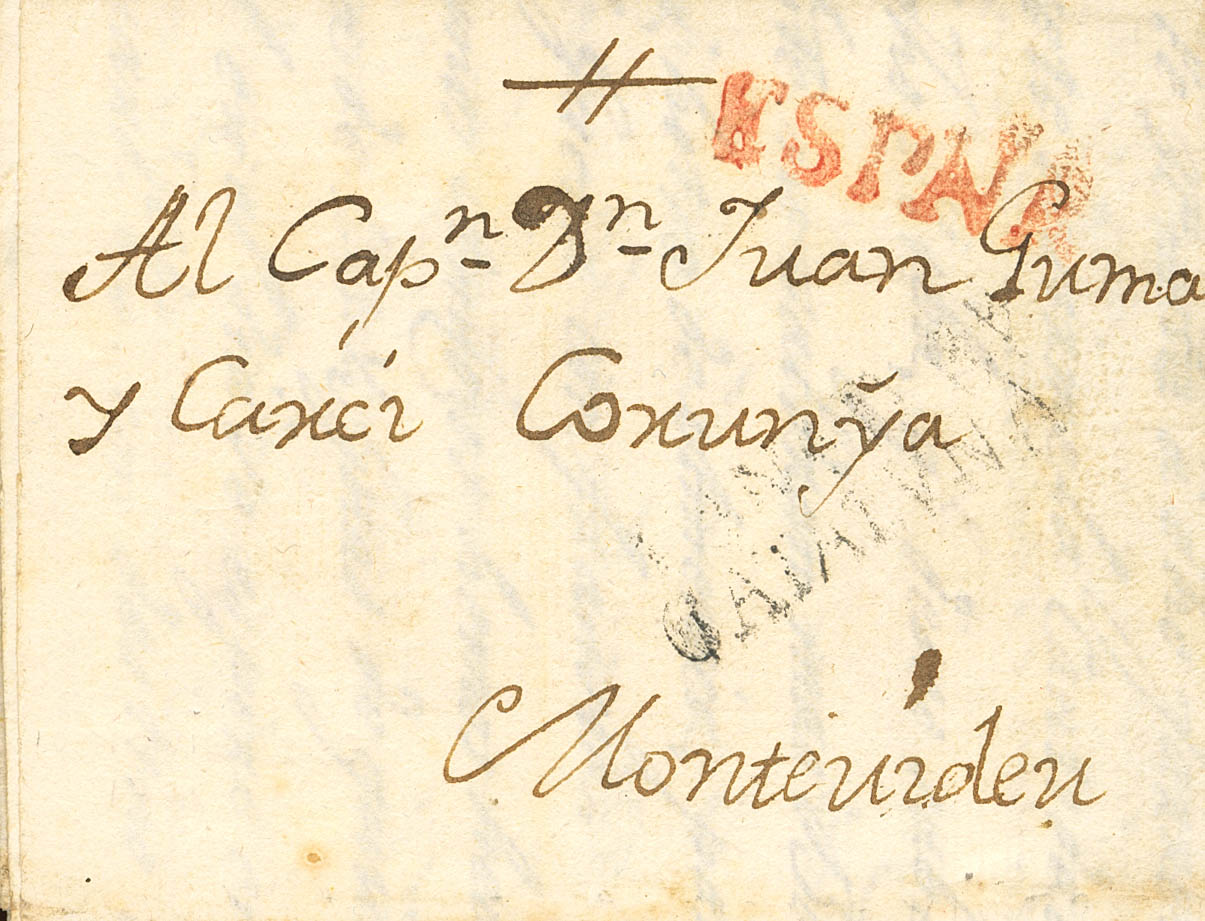 ESPAÑA
Al Cap.n D.n Juan Guma
y Carxci Coruñya
CATALUÑA
Montevideu